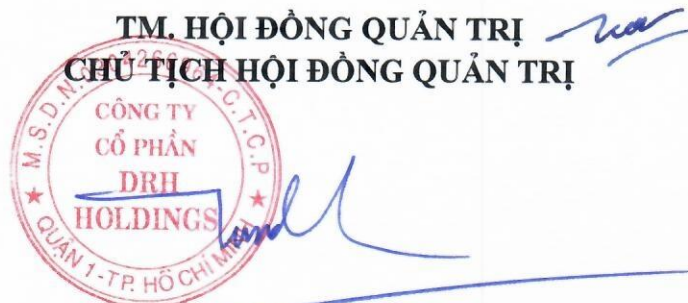 TM. HỘI ĐỒNG QUẢN TRỊ
CHỦ TỊCH HỘI ĐỒNG QUẢN TRỊ
CÔNG TY
CỔ PHẦN
DRH
HOLDINGS
QUẬN 1-T.P. HỒ CHÍ MINH